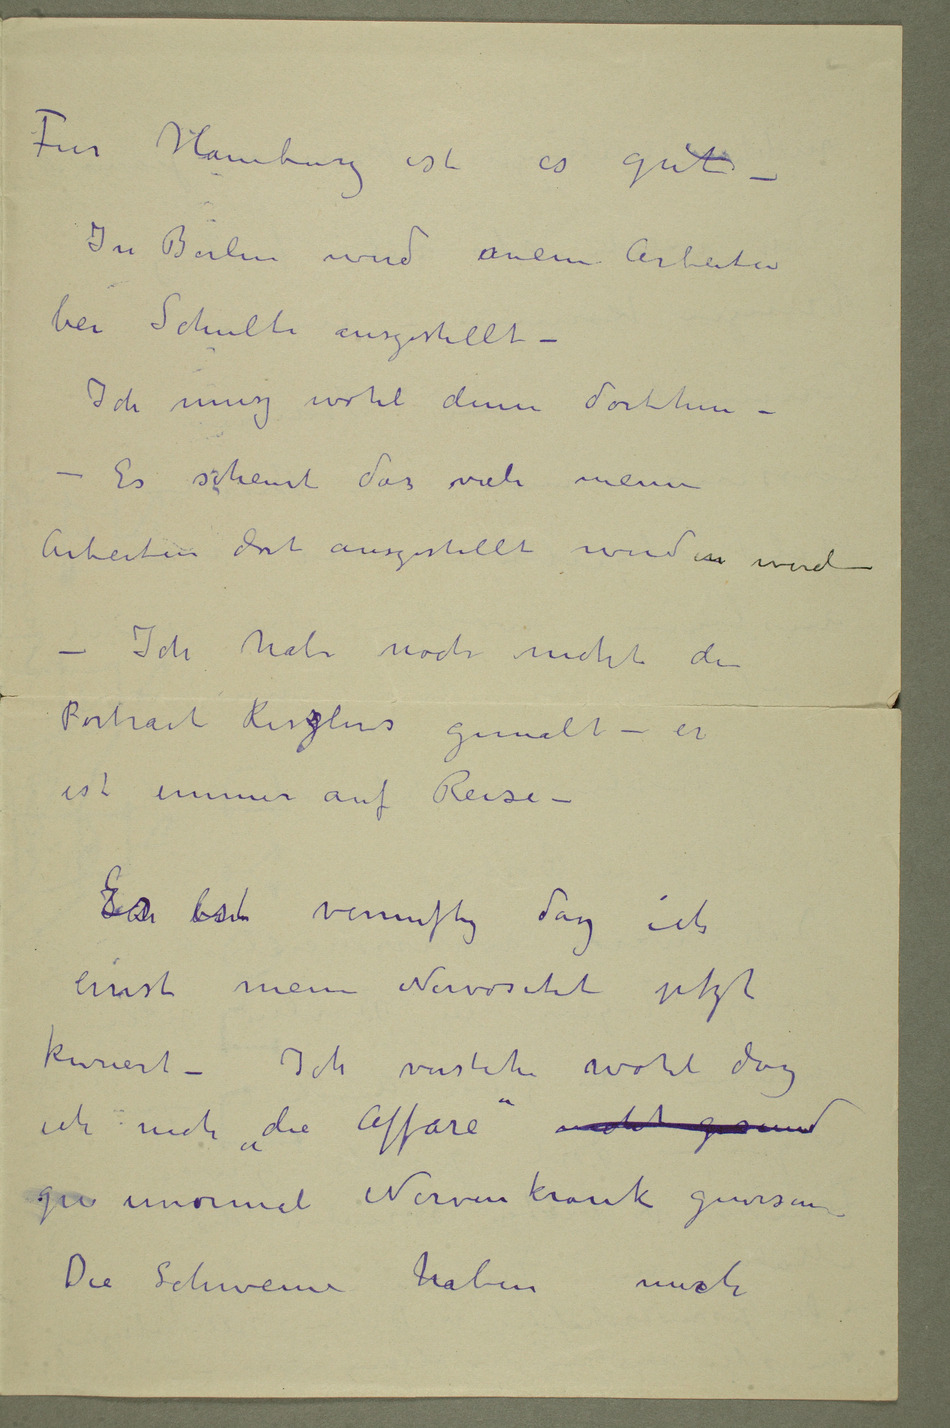 Fur Hamburg ist es gut –
In Berlin wird meine Arbeiten
bei Schulte ausgestellt –
Ich musz wohl denn dorthin –
– Es scheint das viele meine
Arbeiten dort ausgestellt werden werden
– Ich habe noch nicht die
Portrait Keszlers gemalt – er
ist immer auf Reise –
Es ist vernuftig dasz ich
ernst meine Nervositet jetzt
kuriert – Ich verstehe wohl dasz
ich nach „die Affäre“ nicht gesund
unormal Nervenkrank gewesen –
Die Schweine haben mich